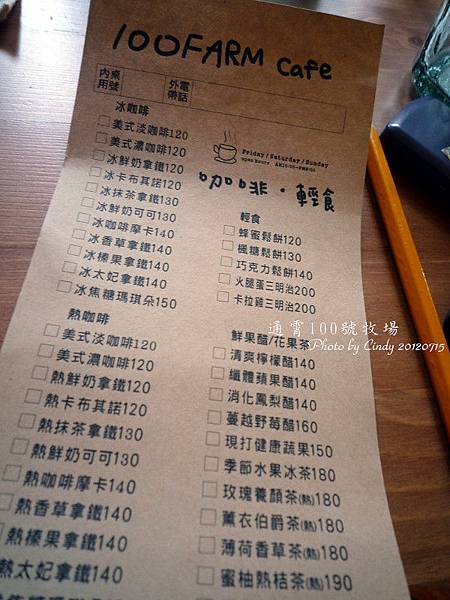 100FARM Cafe
內用 桌號
外帶 電話
Friday/Saturday/Sunday
咖啡·輕食
冰咖啡
美式淡咖啡120
美式濃咖啡120
冰鮮奶拿鐵120
冰卡布其諾120
冰抹茶拿鐵130
冰鮮奶可可130
冰咖啡摩卡140
冰香草拿鐵140
冰榛果拿鐵140
冰太妃拿鐵140
冰焦糖瑪琪朵150
熱咖啡
美式淡咖啡120
美式濃咖啡120
熱鮮奶拿鐵120
熱卡布其諾120
熱抹茶拿鐵130
熱鮮奶可可130
熱咖啡摩卡140
熱香草拿鐵140
熱榛果拿鐵140
熱太妃拿鐵140
輕食
蜂蜜鬆餅120
楓糖鬆餅130
巧克力鬆餅140
火腿蛋三明治200
卡拉雞三明治200
鮮果醋/花果茶
清爽檸檬醋140
纖體蘋果醋140
消化鳳梨醋140
蔓越野莓醋160
現打健康蔬果150
季節水果冰茶180
玫瑰養顏茶(熱)180
薰衣伯爵茶(熱)180
薄荷香草茶(熱)180
蜜柚熱桔茶(熱)190
通霄100號牧場
Photo by Cindy 20120715